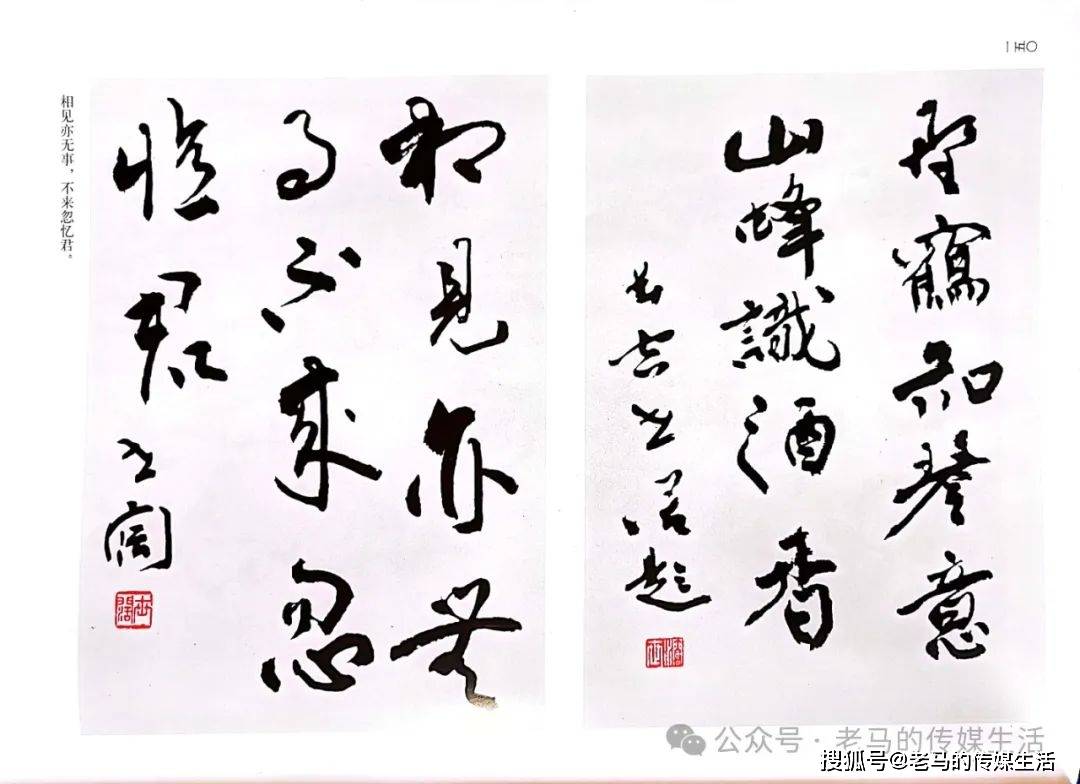 一五〇
野鶴知琴意
山蜂識酒香
相見亦無
事不來忽
憶君
相见亦无事，不来忽忆君。
公众号 · 老马的传媒生活
搜狐号@老马的传媒生活